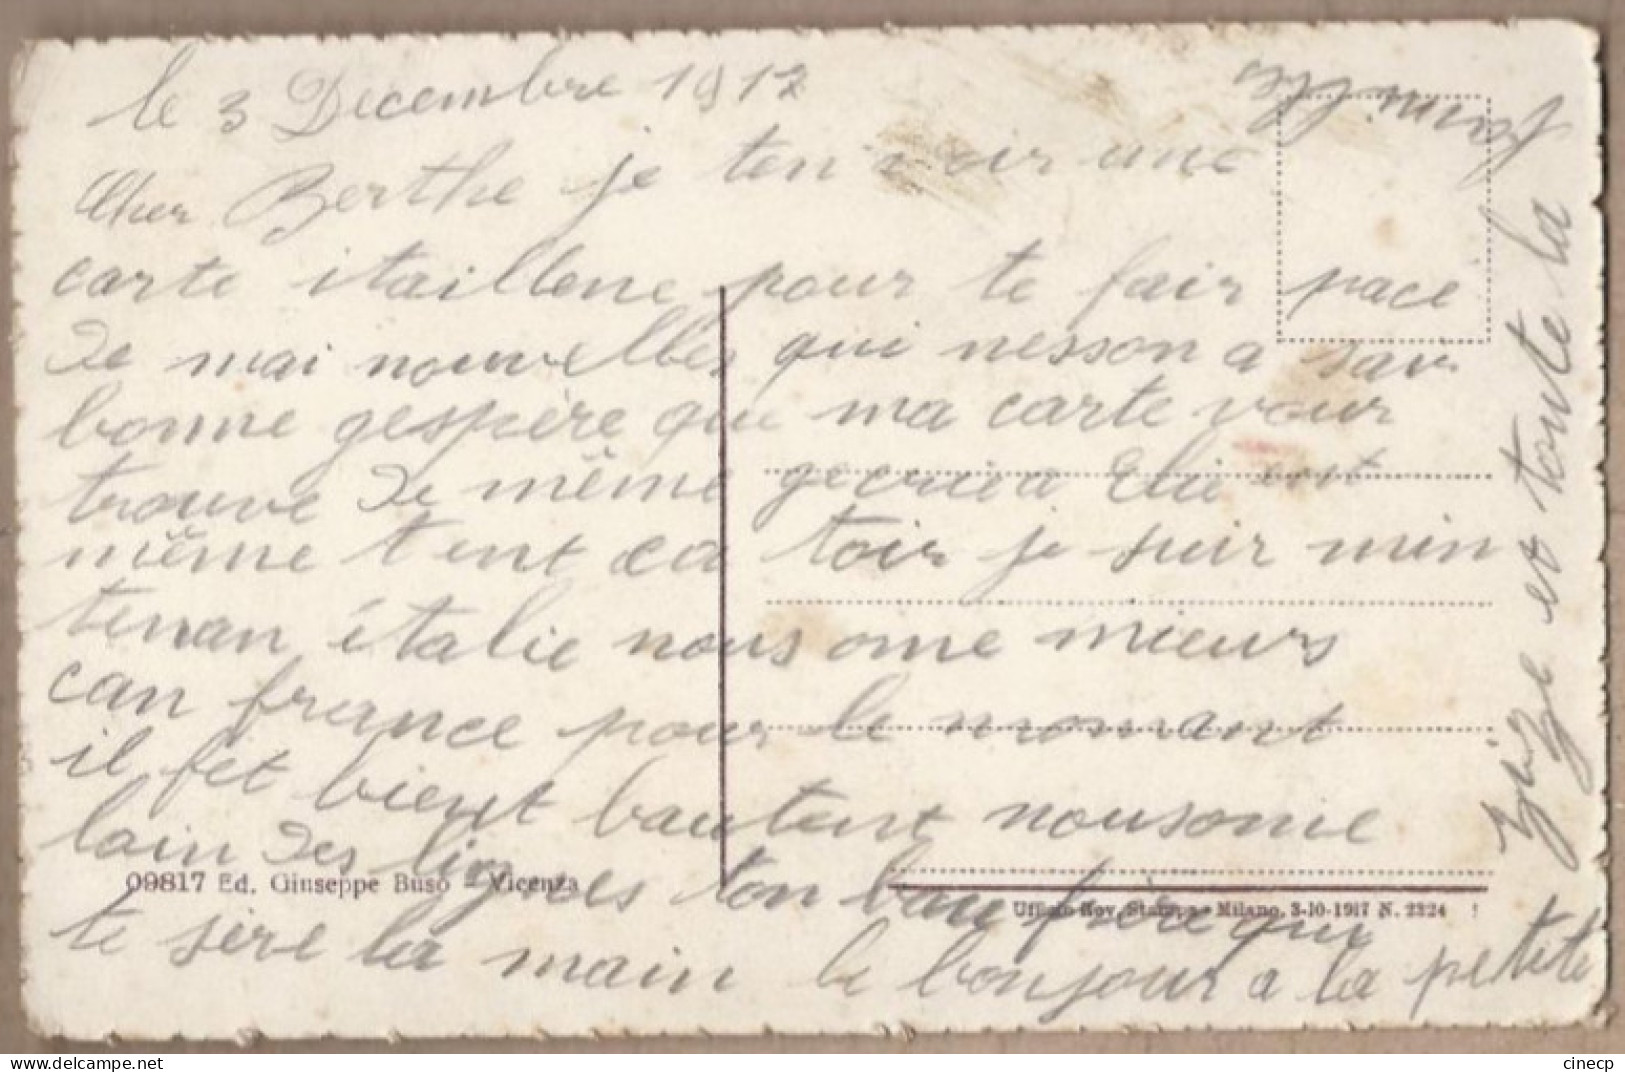 le 3 Decembre 1917
Cher Berthe je ten voir une
carte itaillene pour te fair pace
De mai nouvelles qui nesson a sav
bonne gespère que ma carte vour
trouve De même est
même tent toir je suir min
tenan italie nous ome mieurs
can france pour le momant
il fet bient bautent nousome
lain Des lignes ton bau frère qui
te sère la main le bonjour a la petite
Zize et toute la
famille
09817 Ed. Giuseppe Buso - Vicenza
Ufficio Rev. Stampa - Milano, 3-10-1917 N. 2224
cinecp